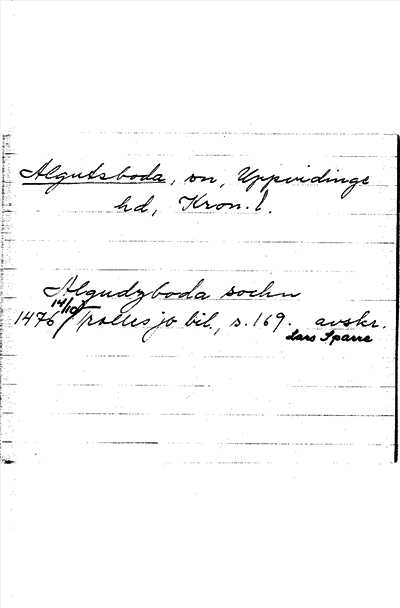 Algutsboda, sn, Uppvidinge
hd, Kron. l.
Algudzboda sochn
1476 14/10 Trollesjö bil., s. 169. avskr.
Lars Sparre